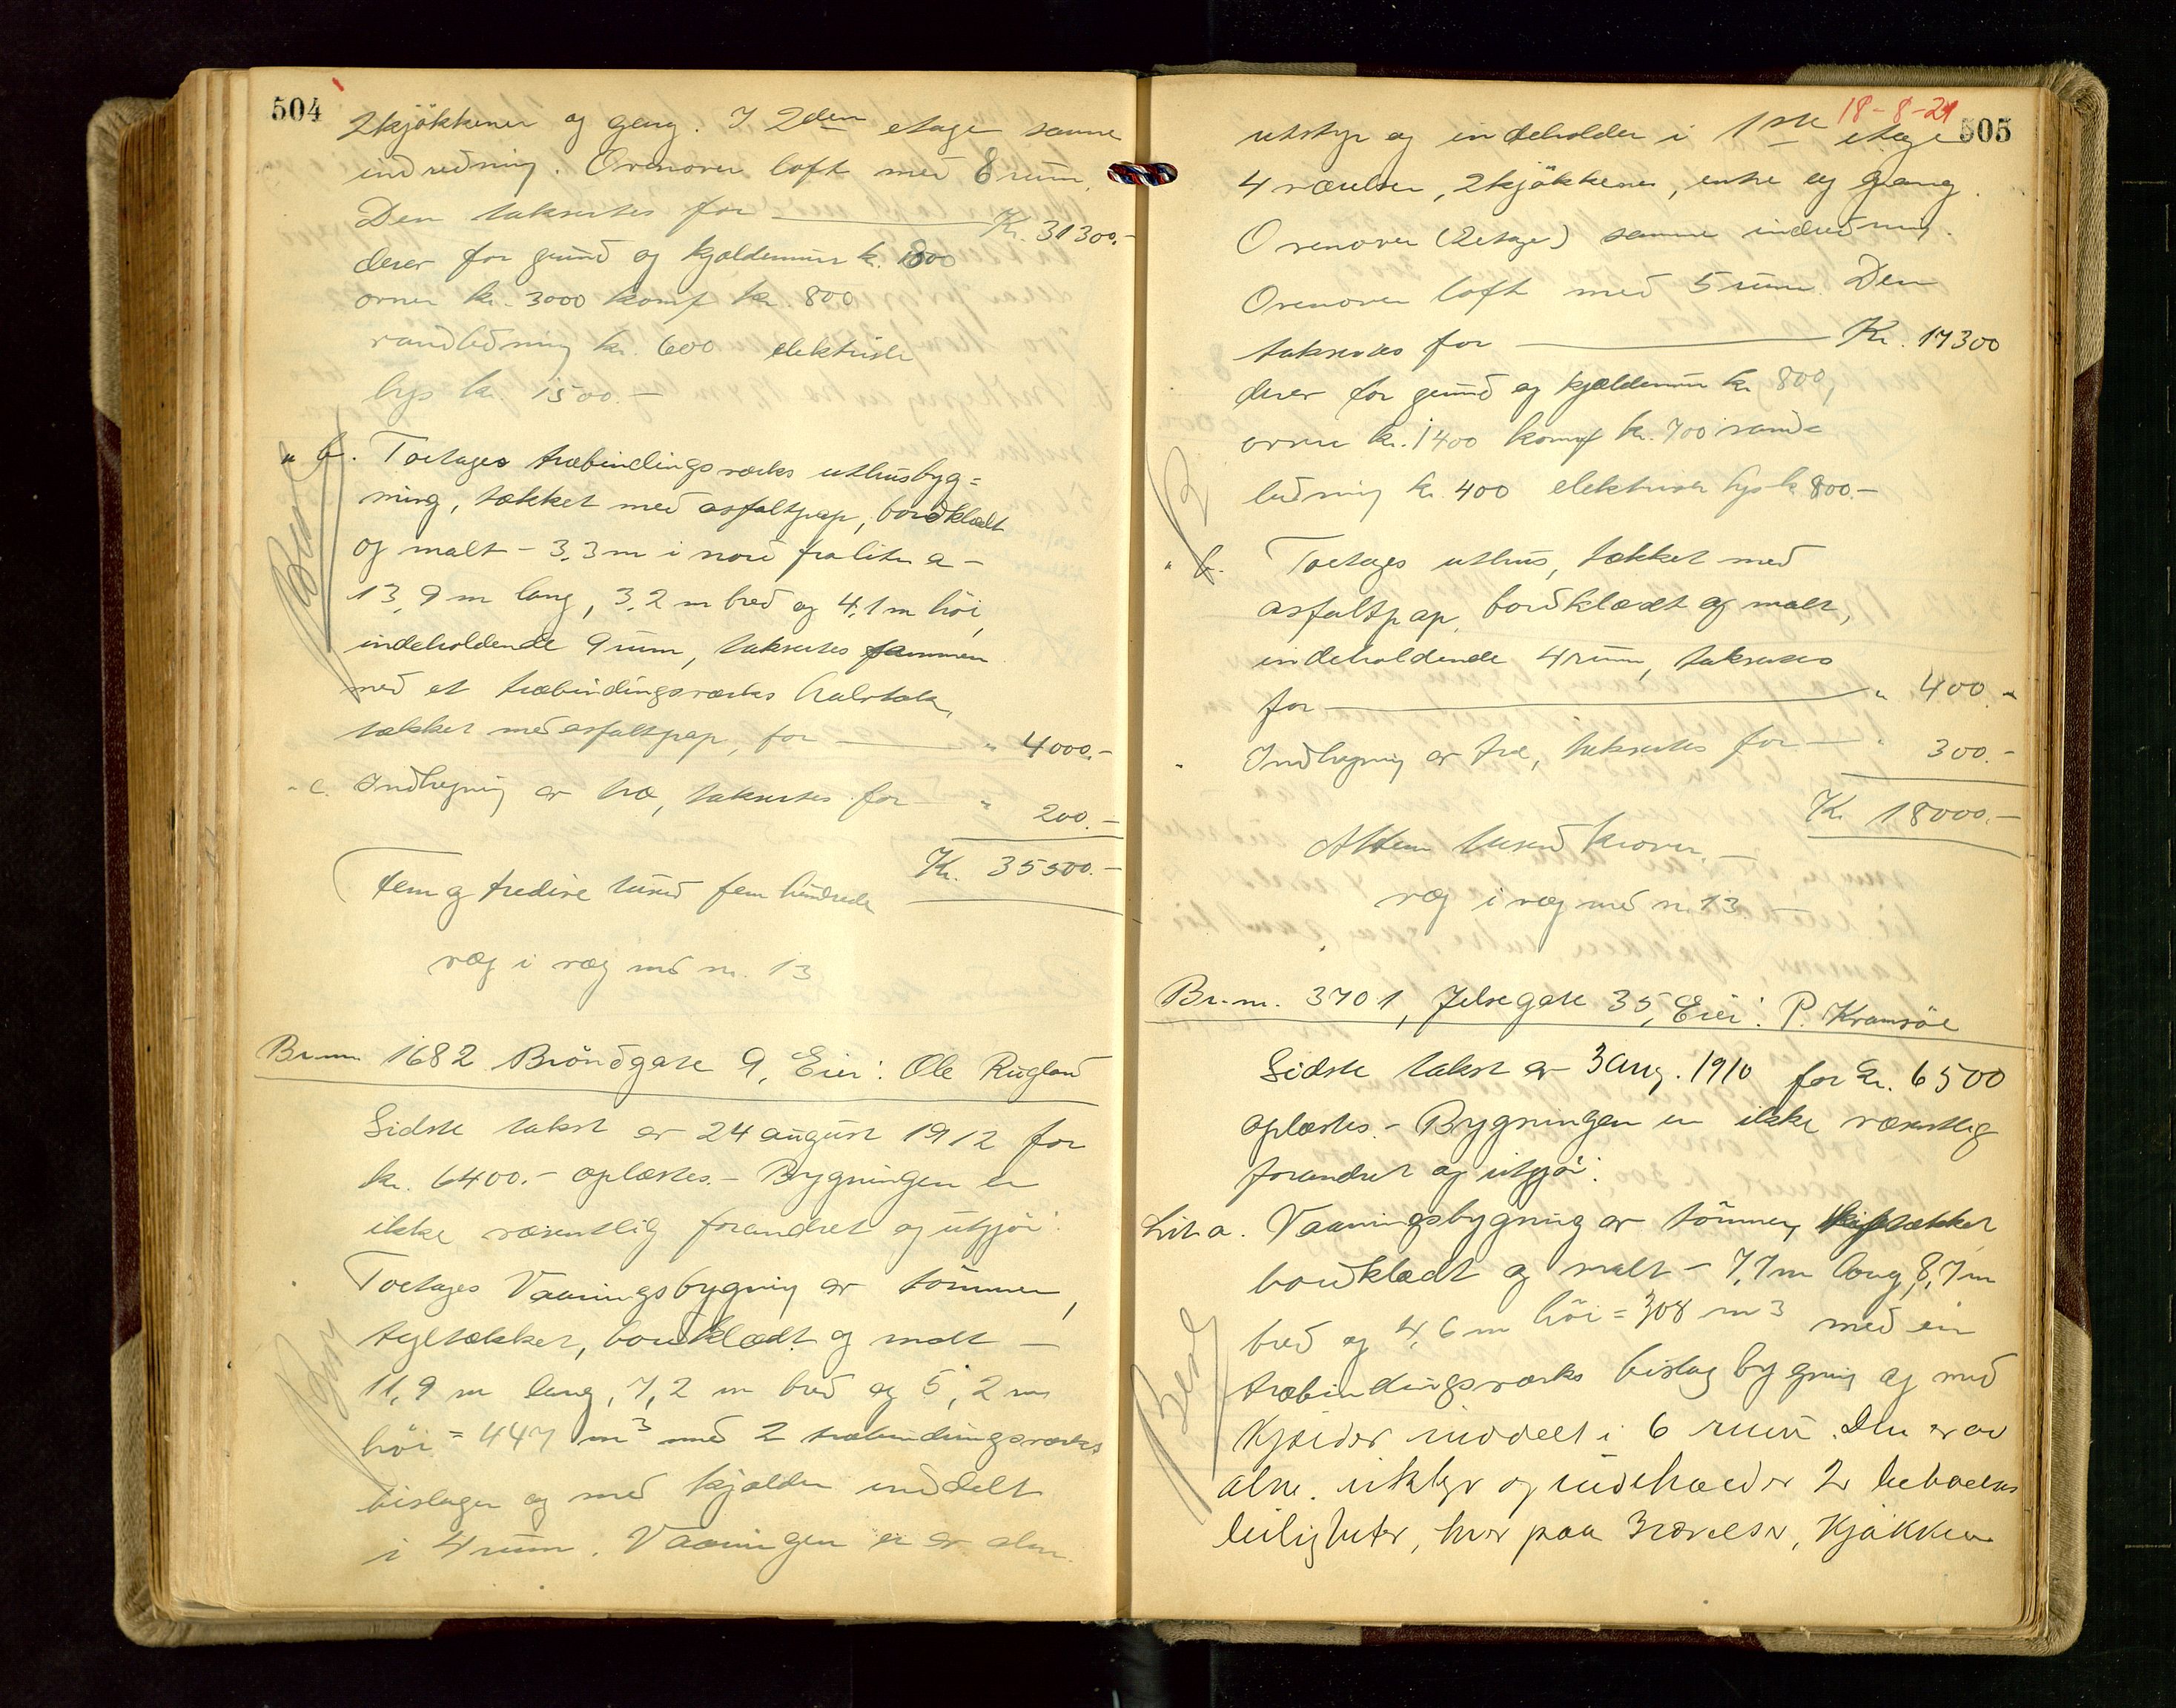 504
2kjøkkener og gang. I 2den etage samme
indredning. Ovenover loft med 8 rum.
Den takseres for Kr. 31300.-
derav for grund og kjældermur k. 1800
ovner kr. 3000 komf kr. 800
vandledning kr. 600 elektrisk
lys kr. 1500.-
" b. Toetages træbindingsverks uthusbyg=
ning, tækket med asfaltpap, bordklædt
og malt - 3,3 m i nord fra litra a -
13,9 m lang, 3,2 m bred og 4,1 m høi,
indeholdende 9 rum, takseres sammen
med et træbindingsverks halvtak,
tækket med asfaltpap, for " 4000.-
" c. Indhegning av træ, takseres for " 200.-
Kr. 35500.-
Fem og tredive tusend fem hundrede
væg i væg med nr. 13
Br.nr. 1682 Brøndgate 9, Eier: Ole Rugland
Sidste takst av 24 august 1912 for
kr. 6400.- oplæstes.- Bygningen er
ikke væsentlig forandret og utgjør:
Toetages Vaaningsbygning av tømmer,
tegltækket, bordklædt og malt -
11,9 m lang, 7,2 m bred og 5,2 m
høi = 447 m3 med 2 træbindingsverks
bislager og med kjælder inddelt
i 4 rum. Vaaningen er av alm.
18-8-21
505
utstyr og indeholder i 1ste etage
4 værelser, 2kjøkkener, entre og gang.
Ovenover (2etage) samme indredning.
Ovenover loft med 5 rum. Den
takseres for Kr. 17300
derav for grund og kjældermur kr. 800,
ovner kr. 1400 komf kr. 700 vand=
ledning kr. 400 elektrisk lys k 800.-
" b. Toetages uthus, tækket med
asfaltpap, bordklædt og malt,
indeholdende 4 rum, takseres
for " 400.-
" Indhegning av træ, takseres for " 300.-
Kr. 18000.-
Atten tusend kroner.-
væg i væg med nr. 13.-
Br.nr. 3701, Jelsegate 35, Eier: P. Kramsöe
Sidste takst av 3 aug. 1910 for kr. 6500
oplæstes.- Bygningen er ikke væsentlig
forandret og utgjør:
Lit. a. Vaaningsbygning av tømmer, tækket
bordklædt og malt - 7,7 m lang, 8,7 m
bred og 4,6 m høi = 308 m3 med en
træbindingsverks bislagbygning og med
Kjælder inddelt i 6 rum. Den er av
alm. utstyr og indeholder 2 beboelses
leiligheter, hver paa 3 værelser, Kjøkken